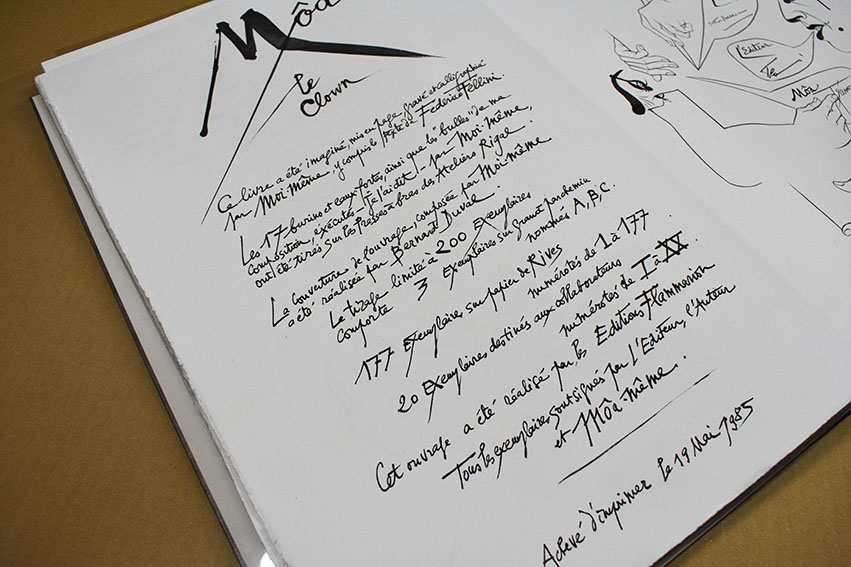 Môa
le
Clown
Ce livre a été imaginé, mis en page, gravé et calligraphié
par Moi-même, y compris le texte de Federico Fellini.
Les 17 burins et eaux-fortes, ainsi que les "bulles" de ma
composition, exécutés - je l'ai dit - par Moi-Même,
ont été tirés sur les Presses à bras des Ateliers Rigal.
La couverture de l'ouvrage, composée par Moi-même
a été réalisée par Bernard Duval.
Le tirage limité à 200 Exemplaires
comporte 3 Exemplaires sur grand parchemin
nommés A, B, C.
177 Exemplaires, sur papier de Rives
numérotés de 1 à 177
20 Exemplaires destinés aux collaborateurs
numérotés de I à XX
Cet ouvrage a été réalisé par les Editions Flammarion
Tous les exemplaires sont signés par l'Editeur, l'Auteur
et Môa-même.
Achevé d'imprimer le 19 Mai 1985
l'Editeur
Môa